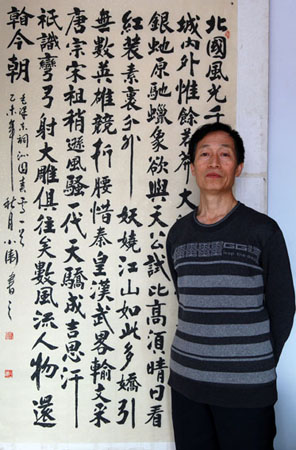 北國風光千
城內外惟餘莽莽大
銀蛇原馳蠟象欲與天公試比高須晴日看
紅裝素裹分外妖嬈江山如此多嬌引
無數英雄競折腰惜秦皇漢武略輸文采
唐宗宋祖稍遜風騷一代天驕成吉思汗
祇識彎弓射大雕俱往矣數風流人物還
看今朝
毛澤東詞沁園春雪一首
乙未年秋月小園書之